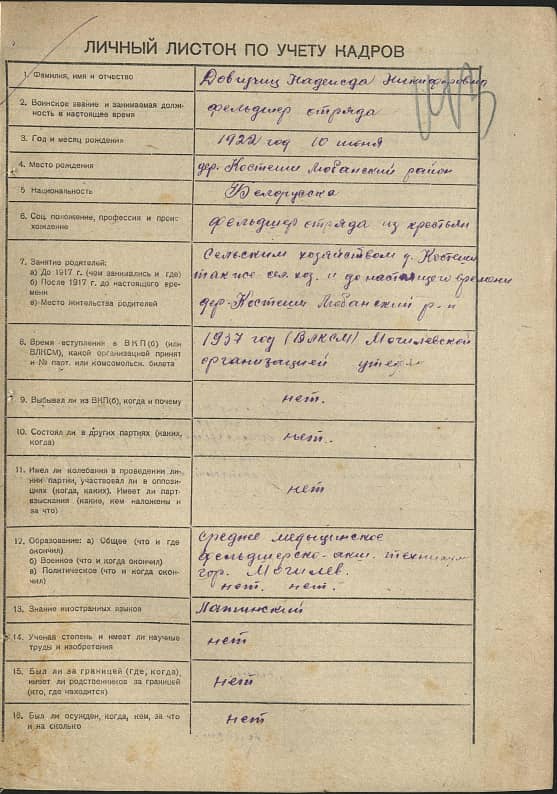 ЛИЧНЫЙ ЛИСТОК ПО УЧЕТУ КАДРОВ
1. Фамилия, имя и отчество
Довидчиц Надежда Никифоровна
2. Воинское звание и занимаемая долж-
ность в настоящее время
фельдшер отряда
3. Год и месяц рождения
1922 год 10 июня
4. Место рождения
дер. Костеши Любанский район
5 Национальность
Белорусска
6. Соц. положение, профессия и проис-
хождение
фельдшер отряда из крестьян
7. Занятие родителей:
а) До 1917 г. (чем занимались и где)
б) После 1917 г. до настоящего вре-
мени
в) Место жительства родителей
Сельским хозяйством д. Костеши
также сел. хоз. и до настоящего времени
дер. Костеши Любанский р-н
8. Время вступления в ВКП(б) (или
ВЛКСМ), какой организацией принят
и № парт. или комсомольск. билета
1937 год (ВЛКСМ) Могилевской
организацией
9. Выбывал ли из ВКП(б), когда и почему
нет.
10. Состоял ли в других партиях (каких,
когда)
нет.
11. Имел ли колебания в проведении ли-
нии партии, участвовал ли в оппози-
циях (когда, каких). Имеет ли парт-
взыскания (какие, кем наложены и
за что)
нет
12. Образование: а) Общее (что и где
окончил)
б) Военное (что и когда окончил)
в) Политическое (что и когда окон-
чил)
средне медыцинское
фельдшерско-акш. техникум
гор. Могилев.
нет. нет.
13. Знание иностранных языков
Латинский
14. Ученая степень и имеет ли научные
труды и изобретения
нет
15. Был ли за границей (где, когда),
имеет ли родственников за границей
(кто, где находится)
нет
16. Был ли осужден, когда, кем, за что
и на сколько
нет